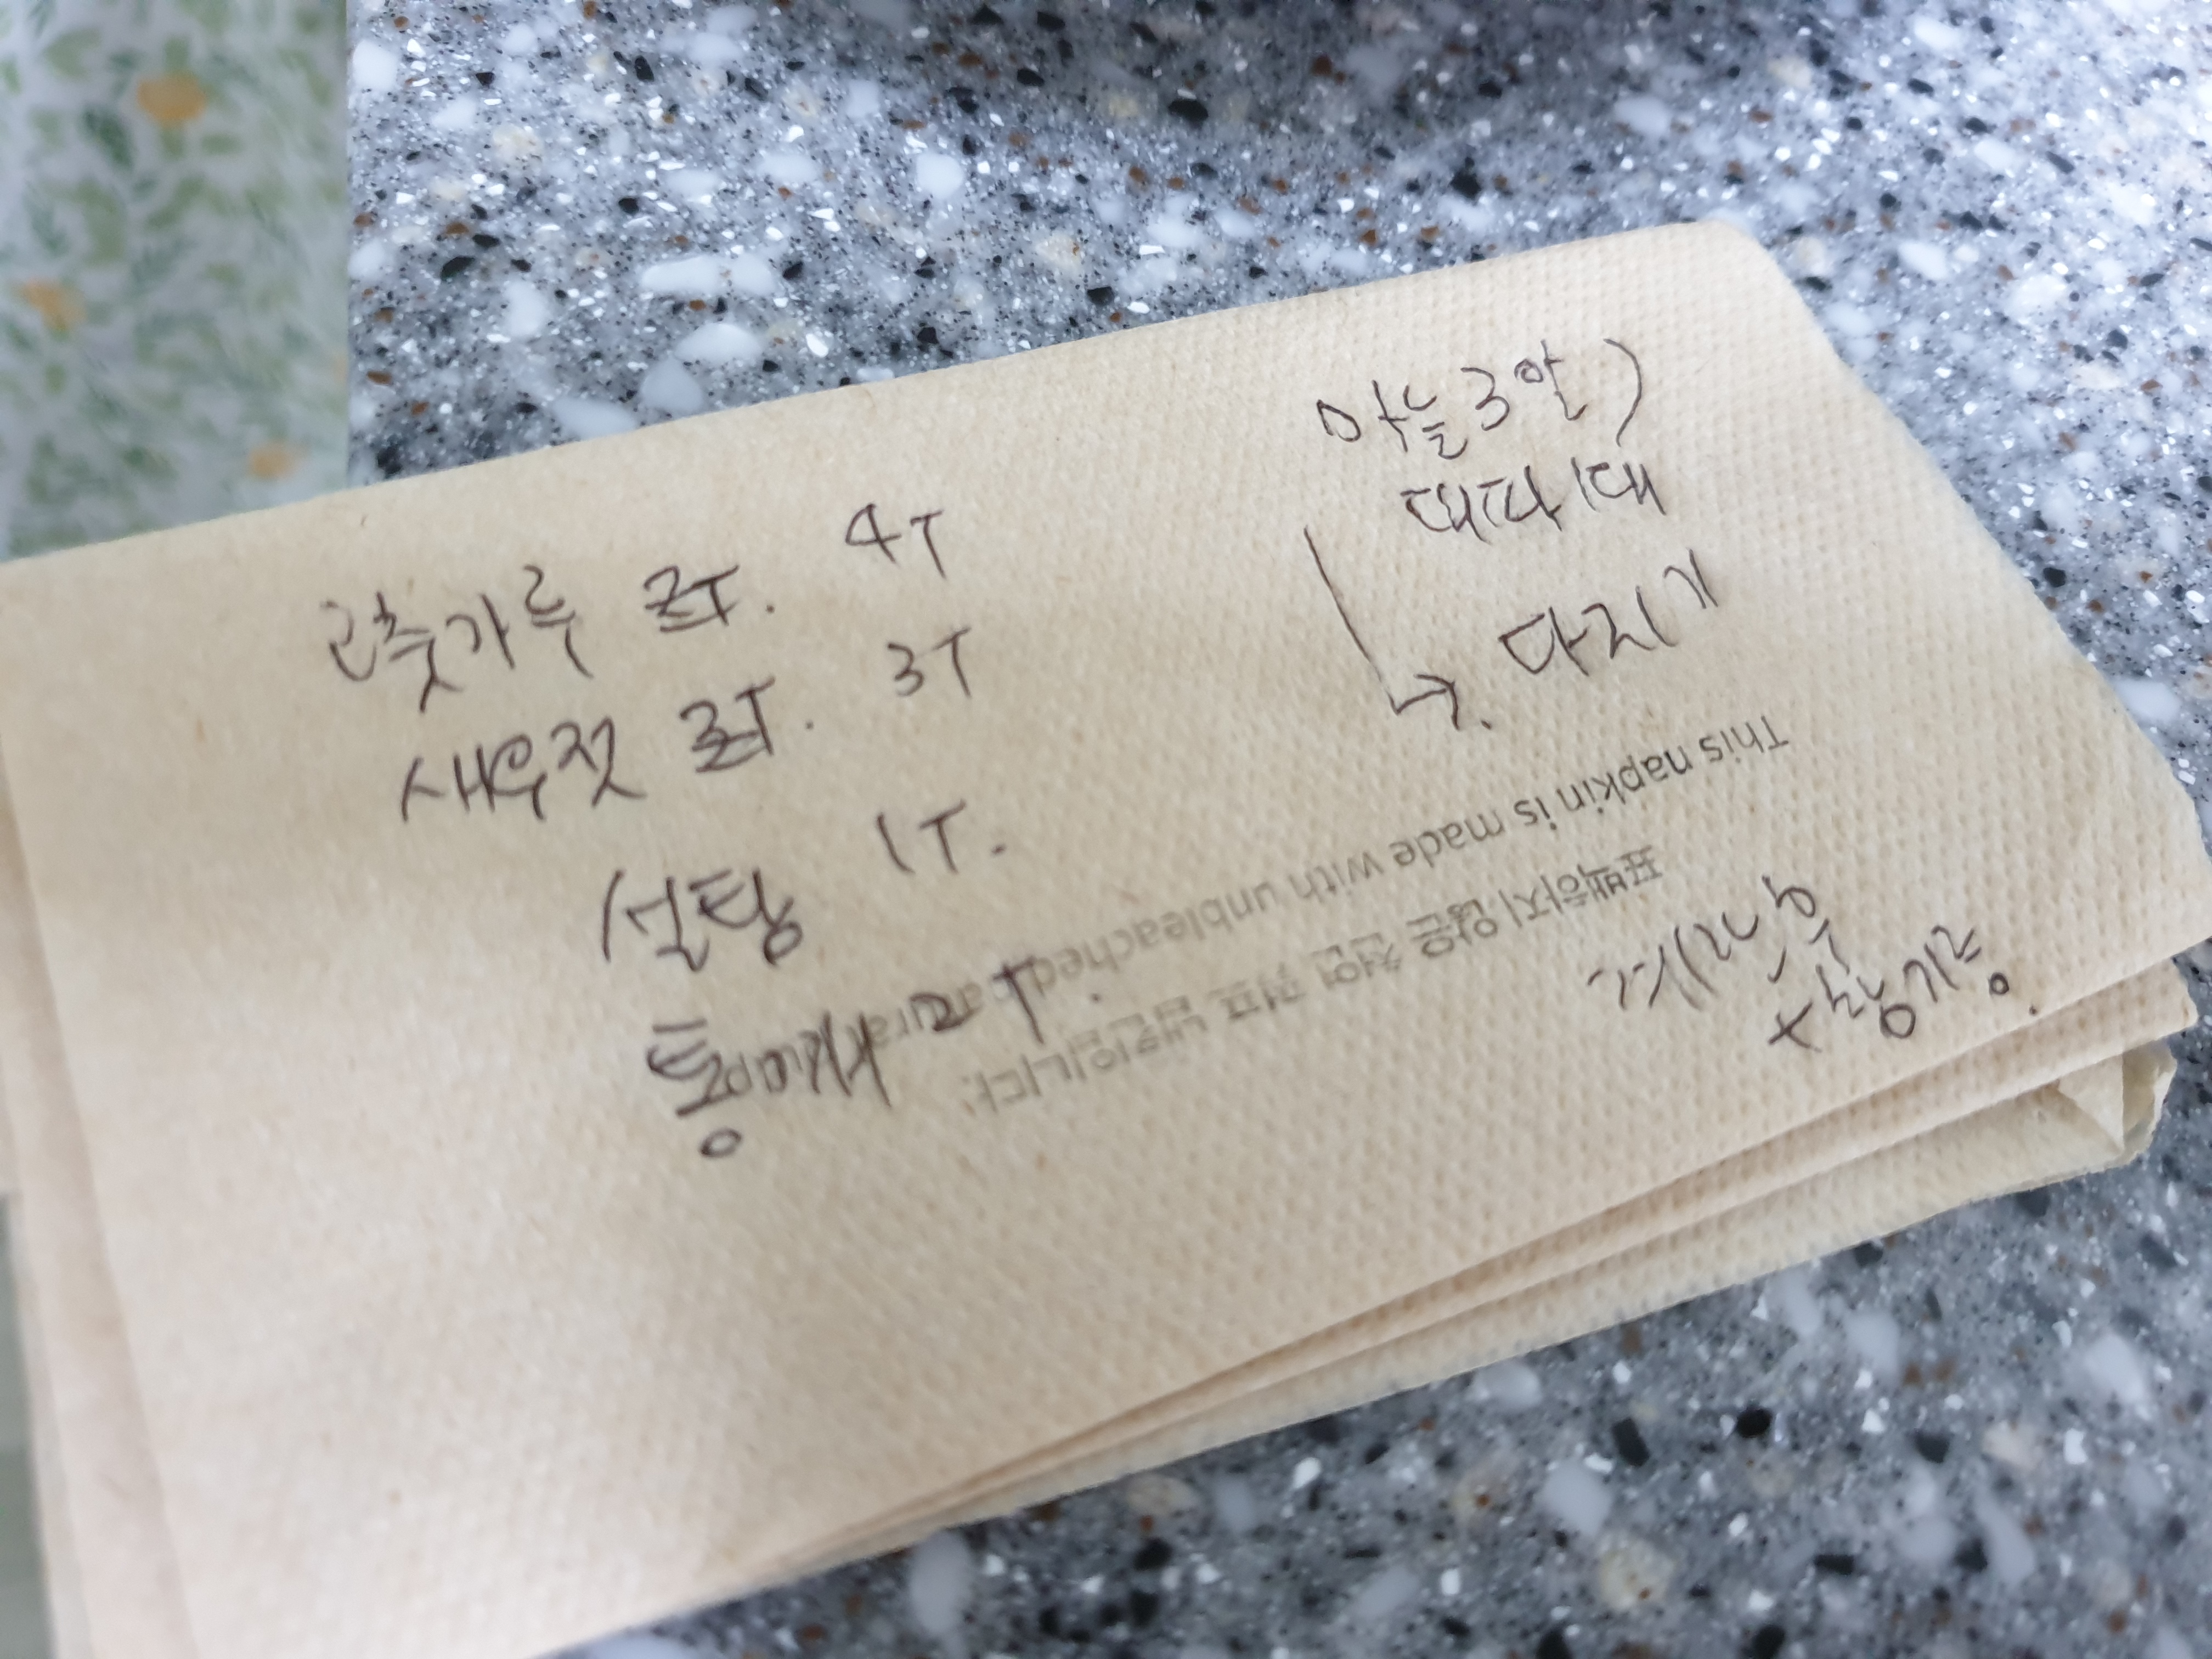 고춧가루 2T. 4T
새우젓 2T. 3T
설탕 1T.
통깨 2T.
마늘3알)
대파1대
→. 다지기
This napkin is made with unbleached natural pulp
표백하지 않은 천연 펄프 냅킨입니다.
참기름.